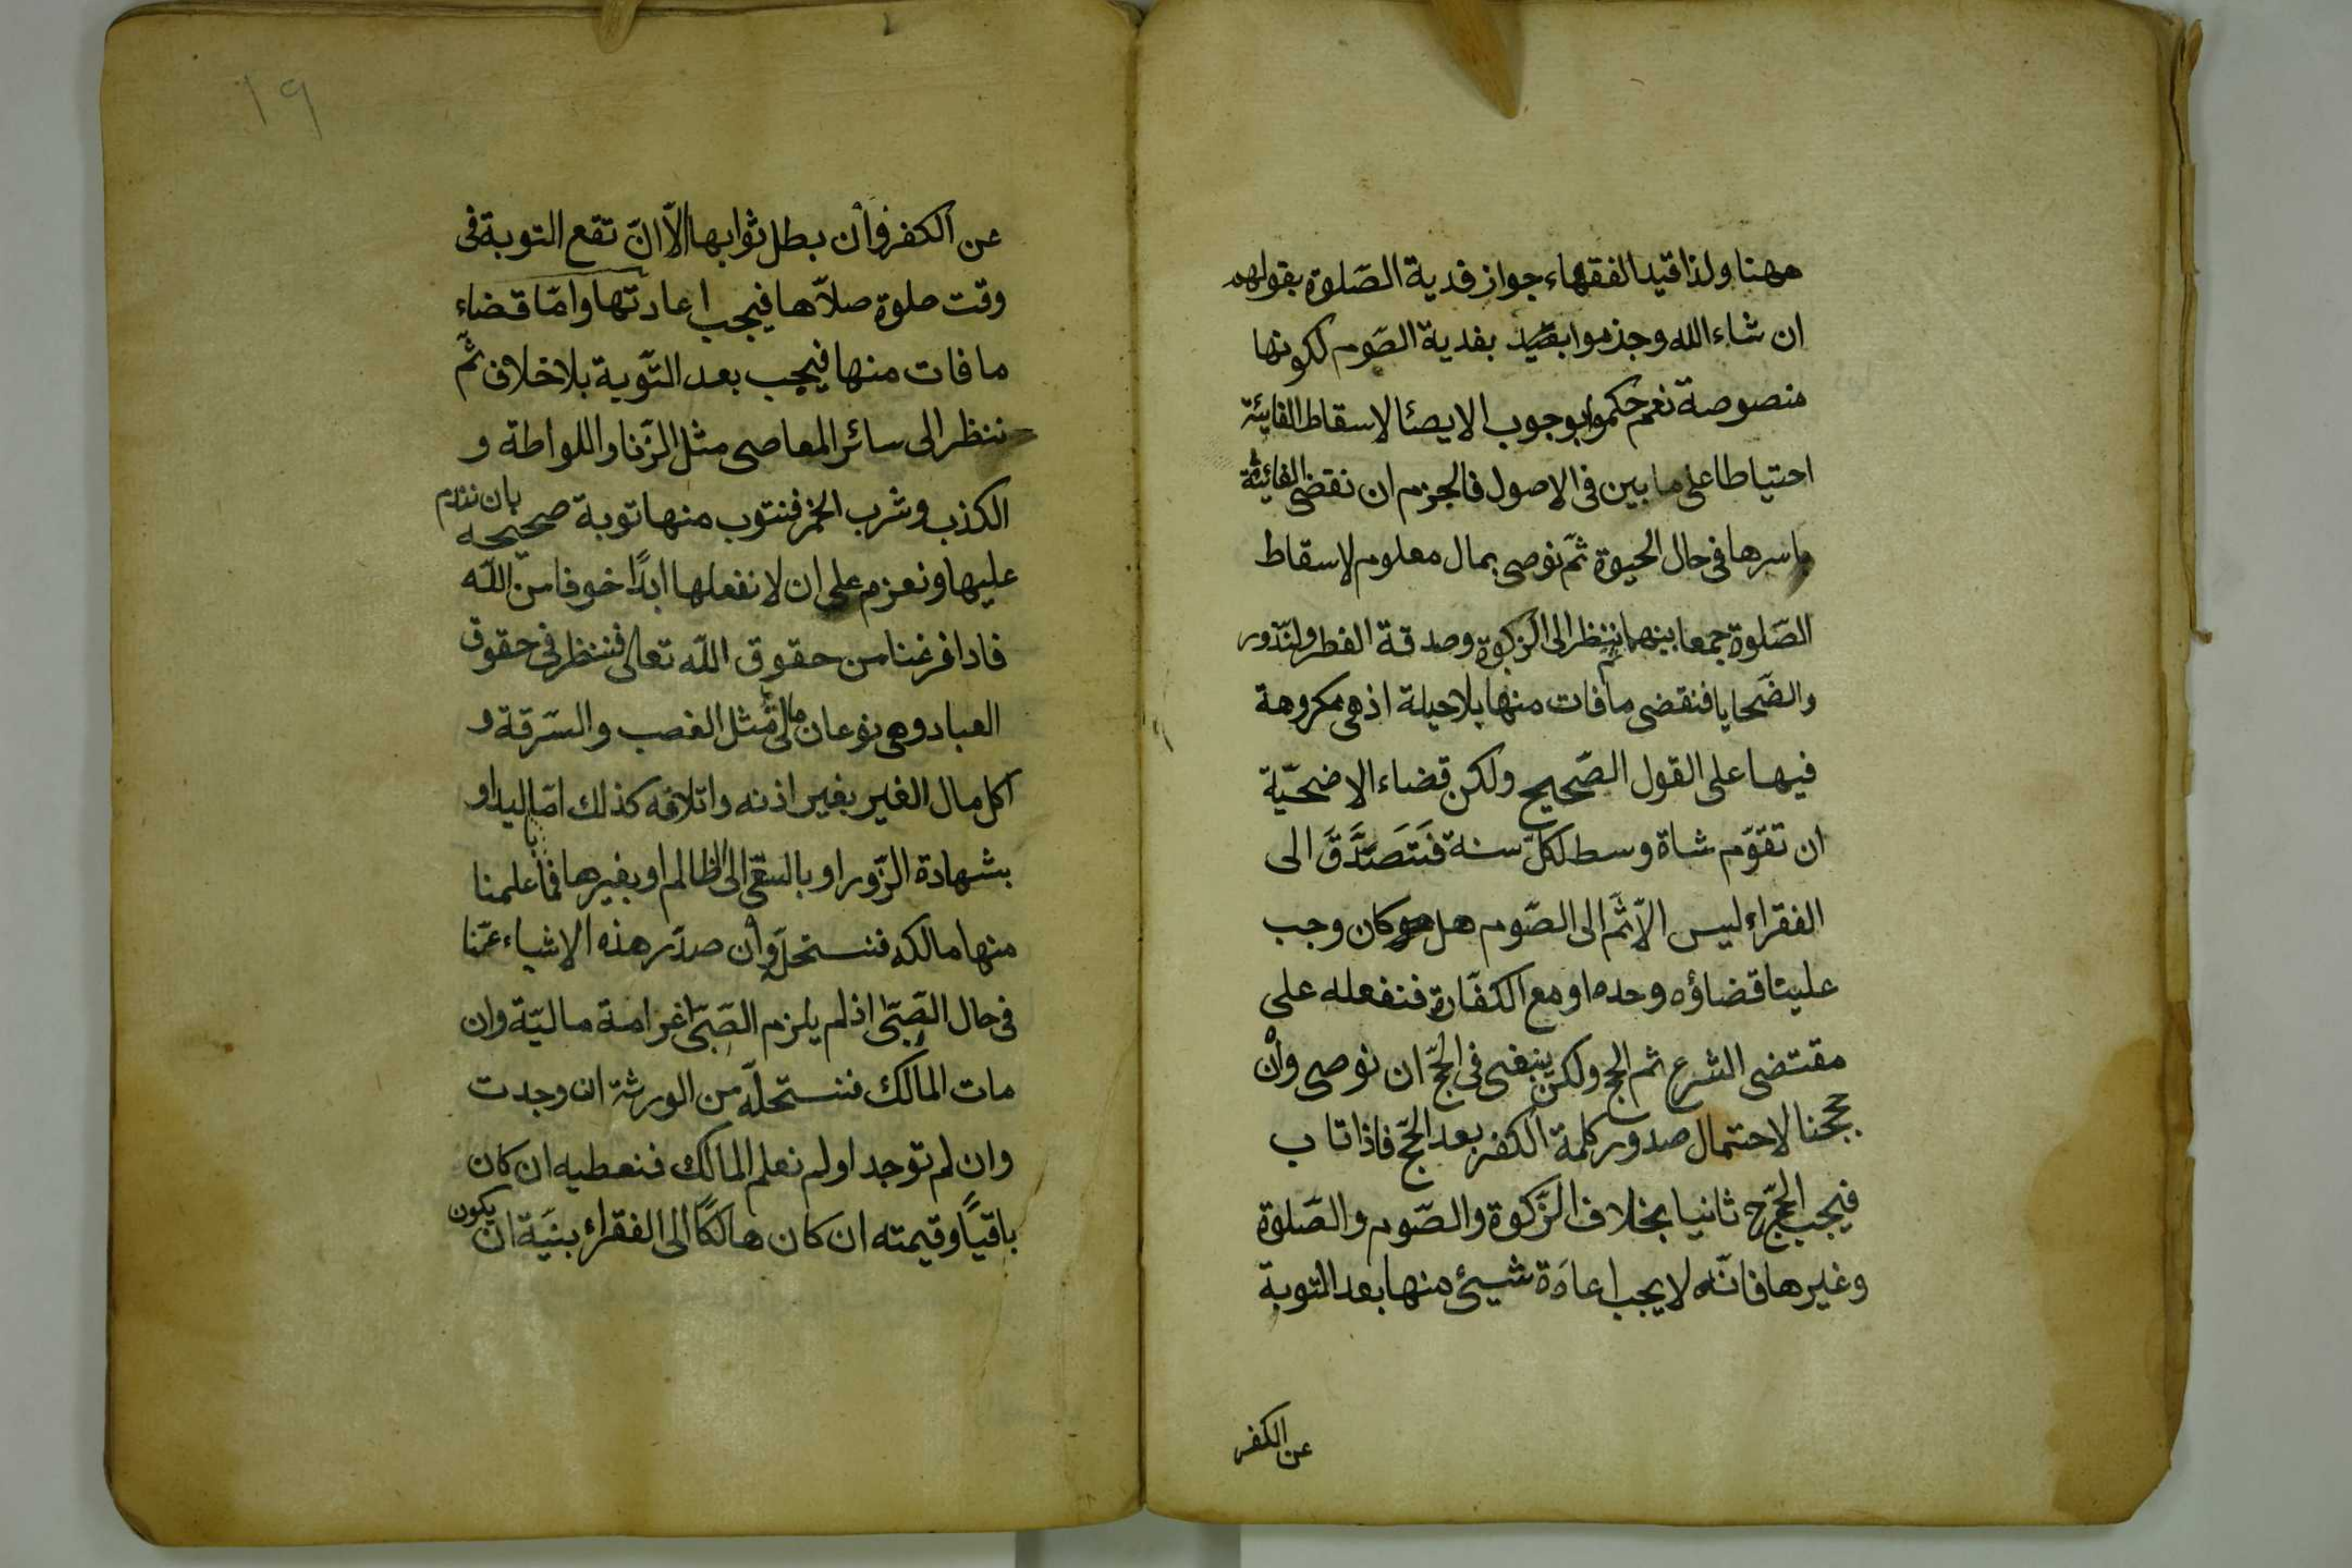 ههنا ولذا قيد الفقهاء جواز فدية الصّلوة بقولهم
ان شاء الله وجزموا بفدية الصّوم لكونها
منصوصة نعم حكموا بوجوب الايصا لاسقاط الفائتة
احتياطا على ما بين فى الاصول فالجزم ان نقضى الفائتة
باسرها فى حال الحيوة ثمّ نوصى بمال معلوم لاسقاط
الصّلوة جمعا بينهما ثم ننظر الى الزكوة وصدقة الفطر والنّذور
والضّحايا فنقضى ما فات منها بلا حيلة اذ هى مكروهة
فيها على القول الصّحيح ولكن قضاء الاضحيّة
ان تقوّم شاة وسط لكلّ سنة فَتَصَدَّقَ الى
الفقراء ليس الّا ثمّ الى الصّوم هل كان وجب
علينا قضاؤه وحده او مع الكفّارة فنفعله على
مقتضى الشرع ثم الحج ولكن ينبغى فى الحجّ ان نوصى وأن
حججنا لاحتمال صدور كلمة الكفر بعد الحجّ فاذا تاب
فيجب الحجّ ثانيا بخلاف الزّكوة والصّوم والصّلوة
وغيرها فانّه لا يجب اعادة شيئ منها بعد التوبة
عن الكفر
١٩
عن الكفر وأن بطل ثوابها الّا انّ تقع التوبة فى
وقت صلوة صلّاها فيجب اعادتها وامّا قضاء
ما فات منها فيجب بعد التّوبة بلا خلاف ثمّ
ننظر الى سائر المعاصى مثل الزّنا واللواطة و
الكذب وشرب الخمر فنتوب منها توبة صحيحه بان نندم
عليها ونعزم على ان لا نفعلها ابدًا خوفا من اللّه
فاذا فرغنا من حقوق اللّه تعالى فننظر فى حقوق
العباد وهى نوعان مالىّ مثل الغصب والسّرقة و
اكل مال الغير بغير اذنه واتلافه كذلك امّا باليد او
بشهادة الزّور او بالسّعى الى الظالم او بغيرها فما علمنا
منها مالكه فنستحلّ وأن صدر هذه الاشياء عنّا
فى حال الصّبىّ اذ لم يلزم الصّبىّ غرامة ماليّة وان
مات المالك فنستحلّه من الورثة ان وجدت
وان لم توجد او لم نعلم المالك فنعطيه ان كان
باقيًا وقيمته ان كان هالكًا الى الفقراء بنيّة ان يكون